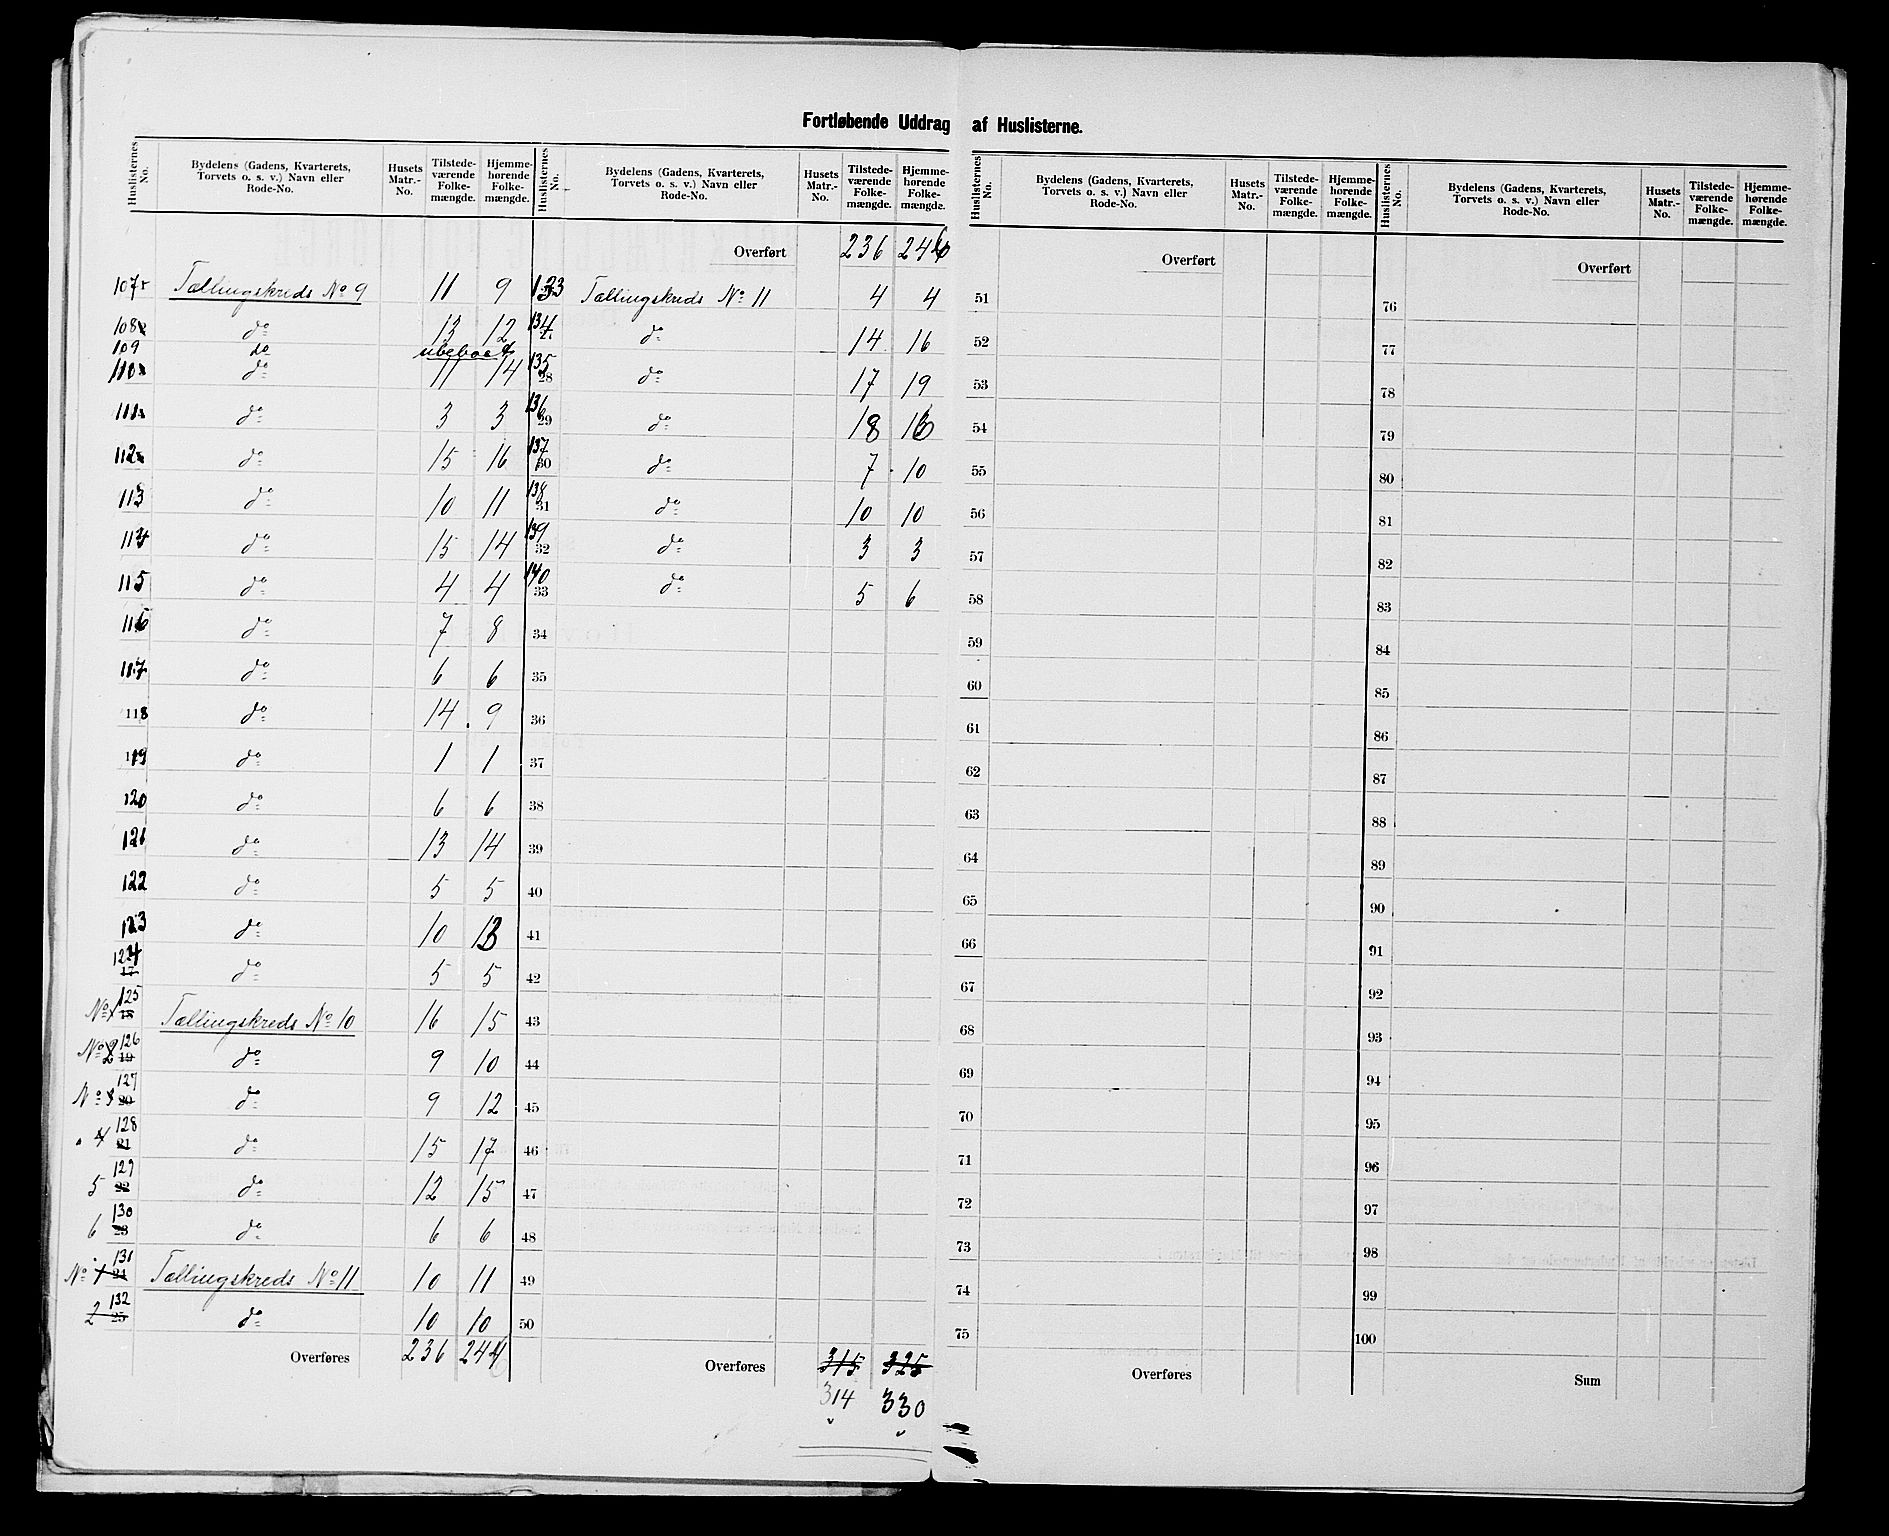 Fortløbende Uddrag af Huslisterne.
Huslisternes No. Bydelens (Gadens, Kvarterets, Torvets o. s. v.) Navn eller Rode-No. Husets Matr.-No. Tilstede-værende Folke-mængde. Hjemme-hørende Folke-mængde.
107 Tællingskreds No 9 11 9
108 do 13 12
109 do ubeboet
110 do 11 14
111 do 3 3
112 do 15 16
113 do 10 11
114 do 15 14
115 do 4 4
116 do 7 8
117 do 6 6
118 do 14 9
119 do 1 1
120 do 6 6
121 do 13 14
122 do 5 5
123 do 10 13
124 17 do 5 5
No 1 125 18 Tællingskreds No 10 16 15
No 2 126 19 do 9 10
No 3 127 20 do 9 12
" 4 128 21 do 15 17
5 129 22 do 12 15
6 130 23 do 6 6
No 1 131 24 Tællingskreds No 11 10 11
2 132 25 do 10 10
Overføres 236 244
Huslisternes No. Bydelens (Gadens, Kvarterets, Torvets o. s. v.) Navn eller Rode-No. Husets Matr.-No. Tilstede-værende Folke-mængde. Hjemme-hørende Folke-mængde.
Overført 236 246
133 Tællingskreds No 11 4 4
134 do 14 16
135 28 do 17 19
136 29 do 18
137 30 do 7 10
138 31 do 10 10
139 32 do 3 3
140 33 do 5 6
34
35
36
37
38
39
40
41
42
43
44
45
46
47
48
49
50
Overføres 315 325
314 330
Huslisternes No. Bydelens (Gadens, Kvarterets, Torvets o. s. v.) Navn eller Rode-No. Husets Matr.-No. Tilstede-værende Folke-mængde. Hjemme-hørende Folke-mængde.
Overført
51
52
53
54
55
56
57
58
59
60
61
62
63
64
65
66
67
68
69
70
71
72
73
74
75
Overføres
Huslisternes No. Bydelens (Gadens, Kvarterets, Torvets o. s. v.) Navn eller Rode-No. Husets Matr.-No. Tilstede-værende Folke-mængde. Hjemme-hørende Folke-mængde.
Overført
76
77
78
79
80
81
82
83
84
85
86
87
88
89
90
91
92
93
94
95
96
97
98
99
100
Sum